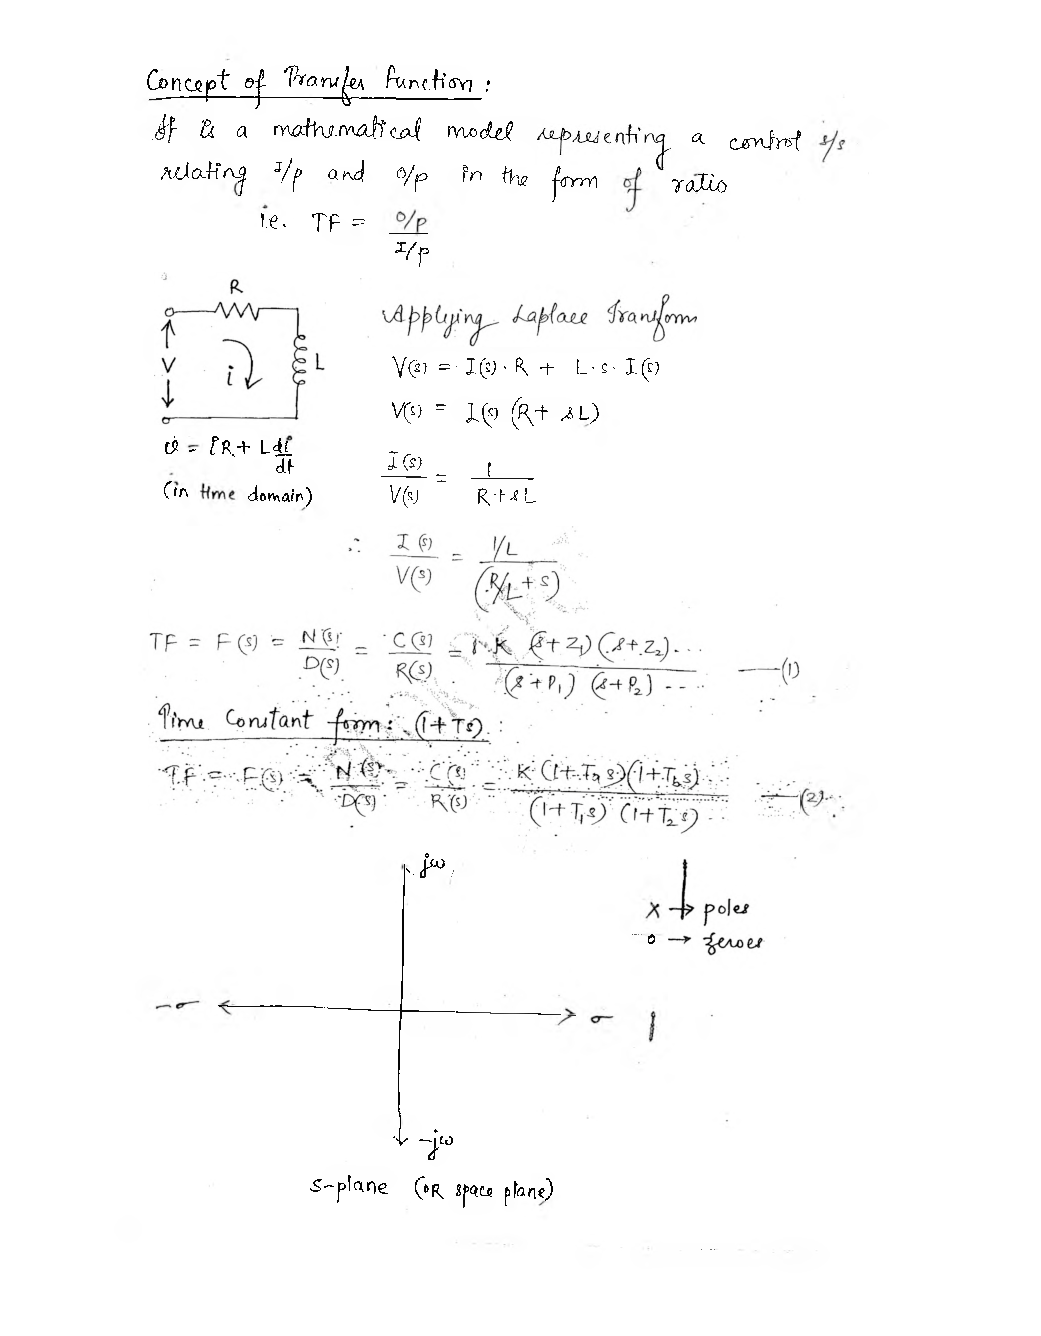 Concept of Transfer Function :
It is a mathematical model representing a control s/s
relating I/p and o/p in the form of ratio
i.e. TF = o/p
I/p
R
V
i
L
v = iR + L di/dt
(in time domain)
Applying Laplace Transform
V(s) = I(s) · R + L · s · I(s)
V(s) = I(s) (R + sL)
I(s)/V(s) = 1/(R + sL)
∴ I(s)/V(s) = 1/L/(R/L + s)
TF = F(s) = N(s)/D(s) = C(s)/R(s) = K (s+Z1)(s+Z2)... / (s+P1)(s+P2)... —(1)
Time Constant form: (1+Ts) :
TF = F(s) = N(s)/D(s) = C(s)/R(s) = K (1+Ta s)(1+Tb s)... / (1+T1s)(1+T2s)... —(2)
jω
x → poles
o → zeroes
-σ
σ
-jω
s-plane (OR space plane)